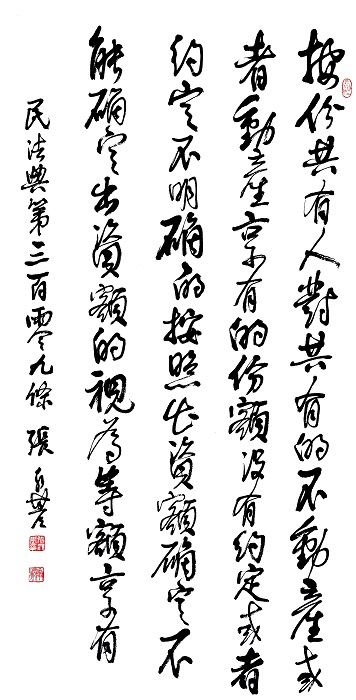 按份共有人對共有的不動產或
者動產享有的份額沒有約定或者
約定不明確的按照出資額確定不
能確定出資額的視為等額享有
民法典第三百零九條 張